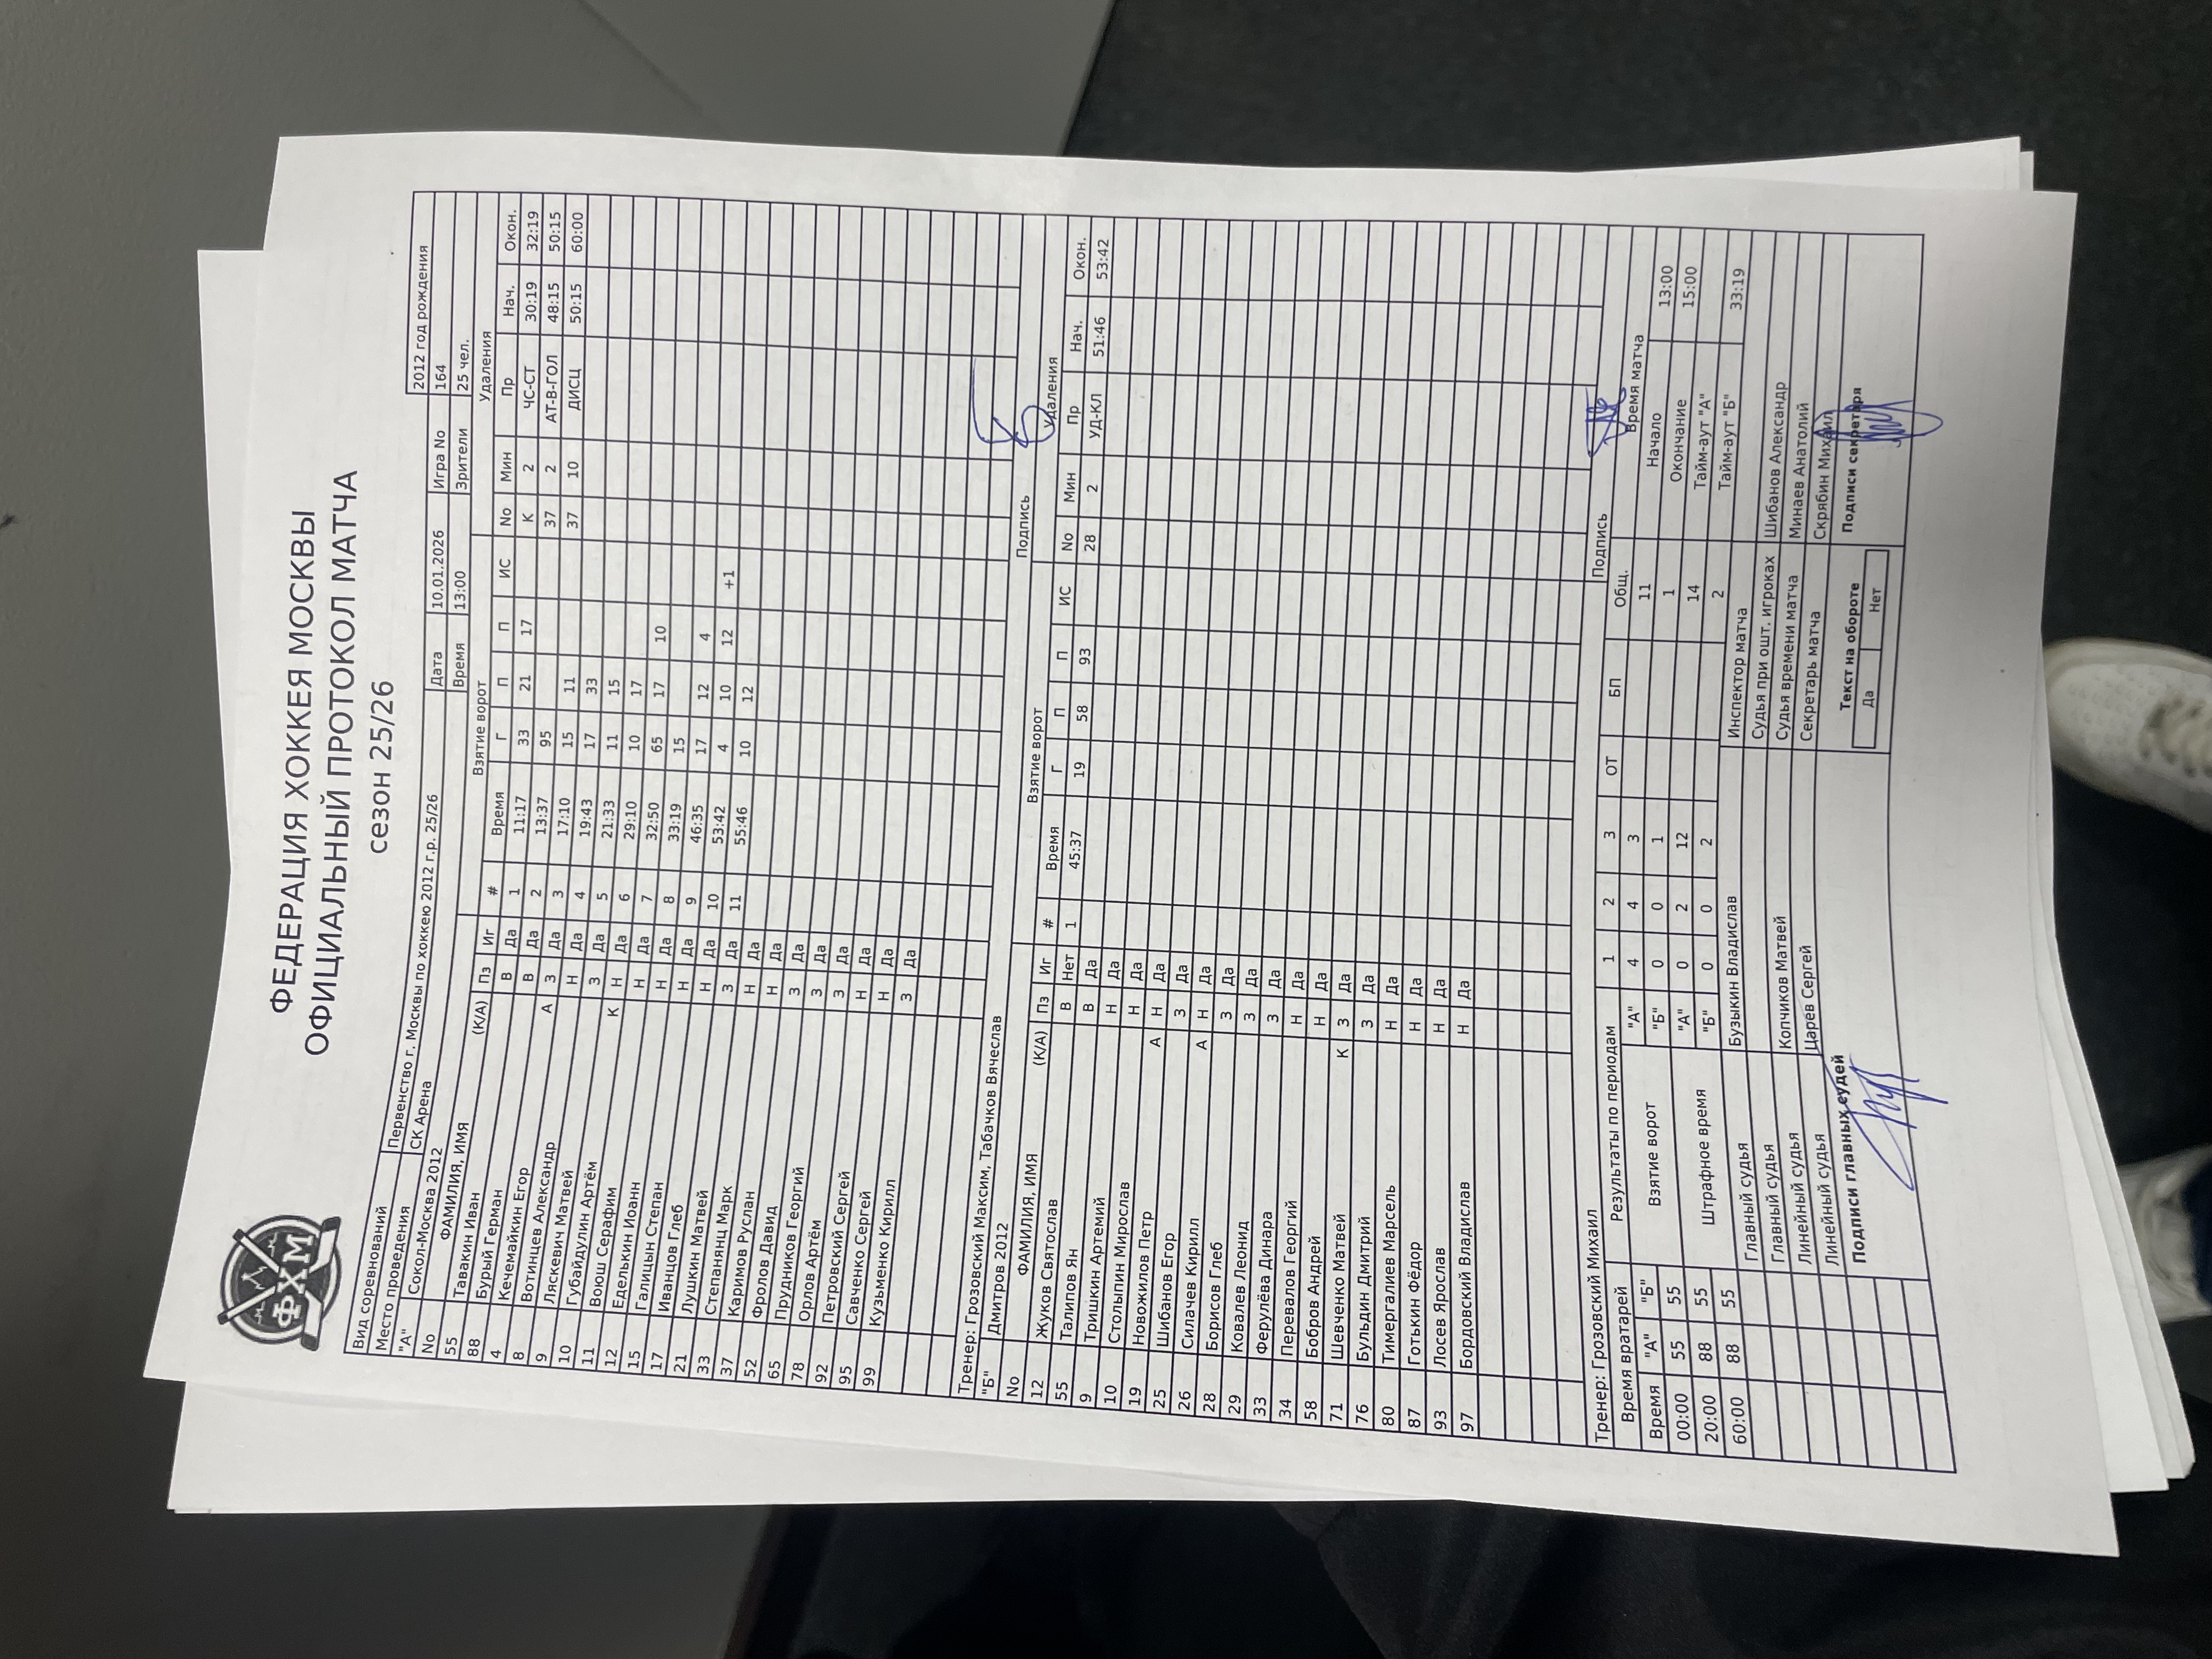 ФЕДЕРАЦИЯ ХОККЕЯ МОСКВЫ
ОФИЦИАЛЬНЫЙ ПРОТОКОЛ МАТЧА
сезон 25/26
ФХМ
Вид соревнований Первенство г. Москвы по хоккею 2012 г.р. 25/26 2012 год рождения
Место проведения СК Арена Дата 10.01.2026 Игра No 164
"А" Сокол-Москва 2012 Время 13:00 Зрители 25 чел.
Взятие ворот Удаления
No ФАМИЛИЯ, ИМЯ (К/А) Пз Иг # Время Г П П ИС No Мин Пр Нач. Окон.
55 Тавакин Иван В Да 1 11:17 33 21 17 К 2 ЧС-СТ 30:19 32:19
88 Бурый Герман В Да 2 13:37 95 37 2 АТ-В-ГОЛ 48:15 50:15
4 Кечемайкин Егор А З Да 3 17:10 15 11 37 10 ДИСЦ 50:15 60:00
8 Вотинцев Александр Н Да 4 19:43 17 33
9 Ляскевич Матвей З Да 5 21:33 11 15
10 Губайдулин Артём К Н Да 6 29:10 10 17
11 Воюш Серафим Н Да 7 32:50 65 17 10
12 Еделькин Иоанн Н Да 8 33:19 15
15 Галицын Степан Н Да 9 46:35 17 12 4
17 Иванцов Глеб Н Да 10 53:42 4 10 12 +1
21 Лушкин Матвей З Да 11 55:46 10 12
33 Степанянц Марк Н Да
37 Каримов Руслан Н Да
52 Фролов Давид З Да
65 Прудников Георгий З Да
78 Орлов Артём З Да
92 Петровский Сергей Н Да
95 Савченко Сергей Н Да
99 Кузьменко Кирилл З Да
Тренер: Грозовский Максим, Табачков Вячеслав Подпись
"Б" Дмитров 2012 Взятие ворот Удаления
No ФАМИЛИЯ, ИМЯ (К/А) Пз Иг # Время Г П П ИС No Мин Пр Нач. Окон.
12 Жуков Святослав В Нет 1 45:37 19 58 93 28 2 УД-КЛ 51:46 53:42
55 Талипов Ян В Да
9 Тришкин Артемий Н Да
10 Столыпин Мирослав Н Да
19 Новожилов Петр А Н Да
25 Шибанов Егор З Да
26 Силачев Кирилл А Н Да
28 Борисов Глеб З Да
29 Ковалев Леонид З Да
33 Ферулёва Динара З Да
34 Перевалов Георгий Н Да
58 Бобров Андрей Н Да
71 Шевченко Матвей К З Да
76 Бульдин Дмитрий З Да
80 Тимергалиев Марсель Н Да
87 Готькин Фёдор Н Да
93 Лосев Ярослав Н Да
97 Бордовский Владислав Н Да
Тренер: Грозовский Михаил Подпись
Время вратарей Результаты по периодам 1 2 3 ОТ БП Общ. Время матча
Время "А" "Б" Взятие ворот "А" 4 4 3 11 Начало 13:00
00:00 55 55 "Б" 0 0 1 1 Окончание 15:00
20:00 88 55 Штрафное время "А" 0 2 12 14 Тайм-аут "А"
60:00 88 55 "Б" 0 0 2 2 Тайм-аут "Б" 33:19
Главный судья Бузыкин Владислав Инспектор матча
Главный судья Судья при ошт. игроках Шибанов Александр
Линейный судья Копчиков Матвей Судья времени матча Минаев Анатолий
Линейный судья Царёв Сергей Секретарь матча Скрябин Михаил
Подписи главных судей Текст на обороте Подписи секретаря
Да Нет